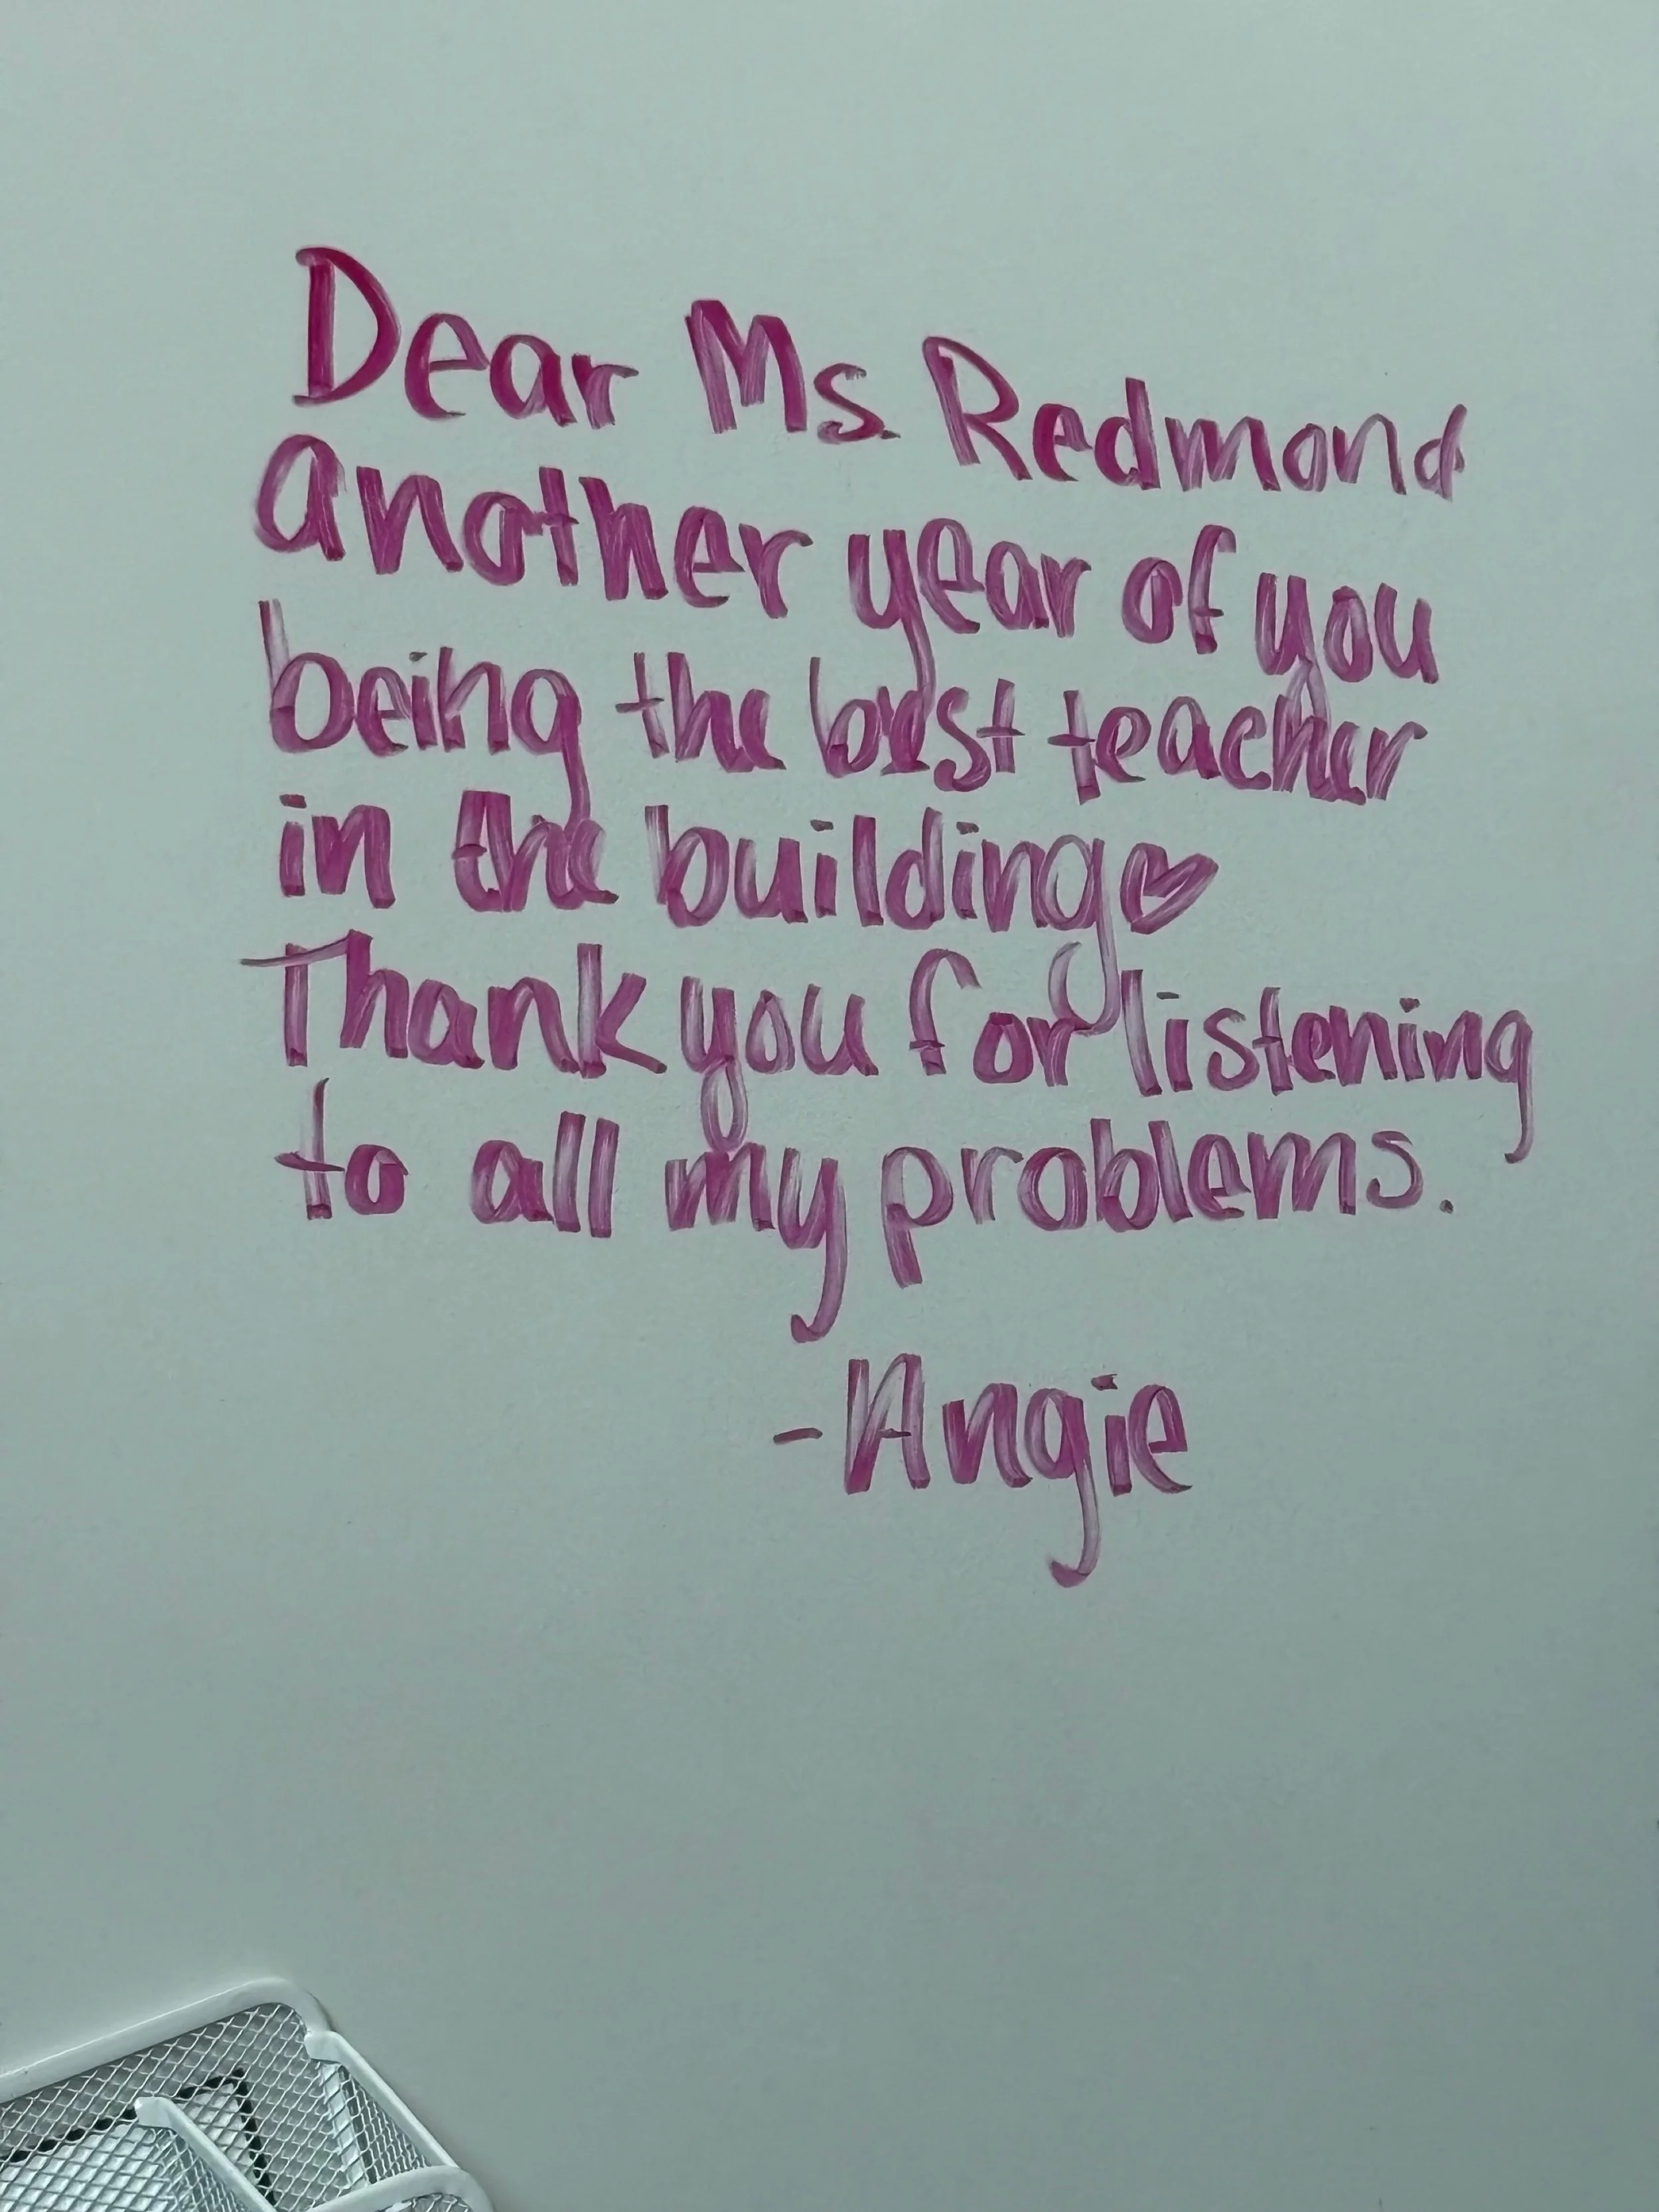 Dear Ms. Redmond
another year of you
being the best teacher
in the building♥
Thank you for listening
to all my problems.
-Angie